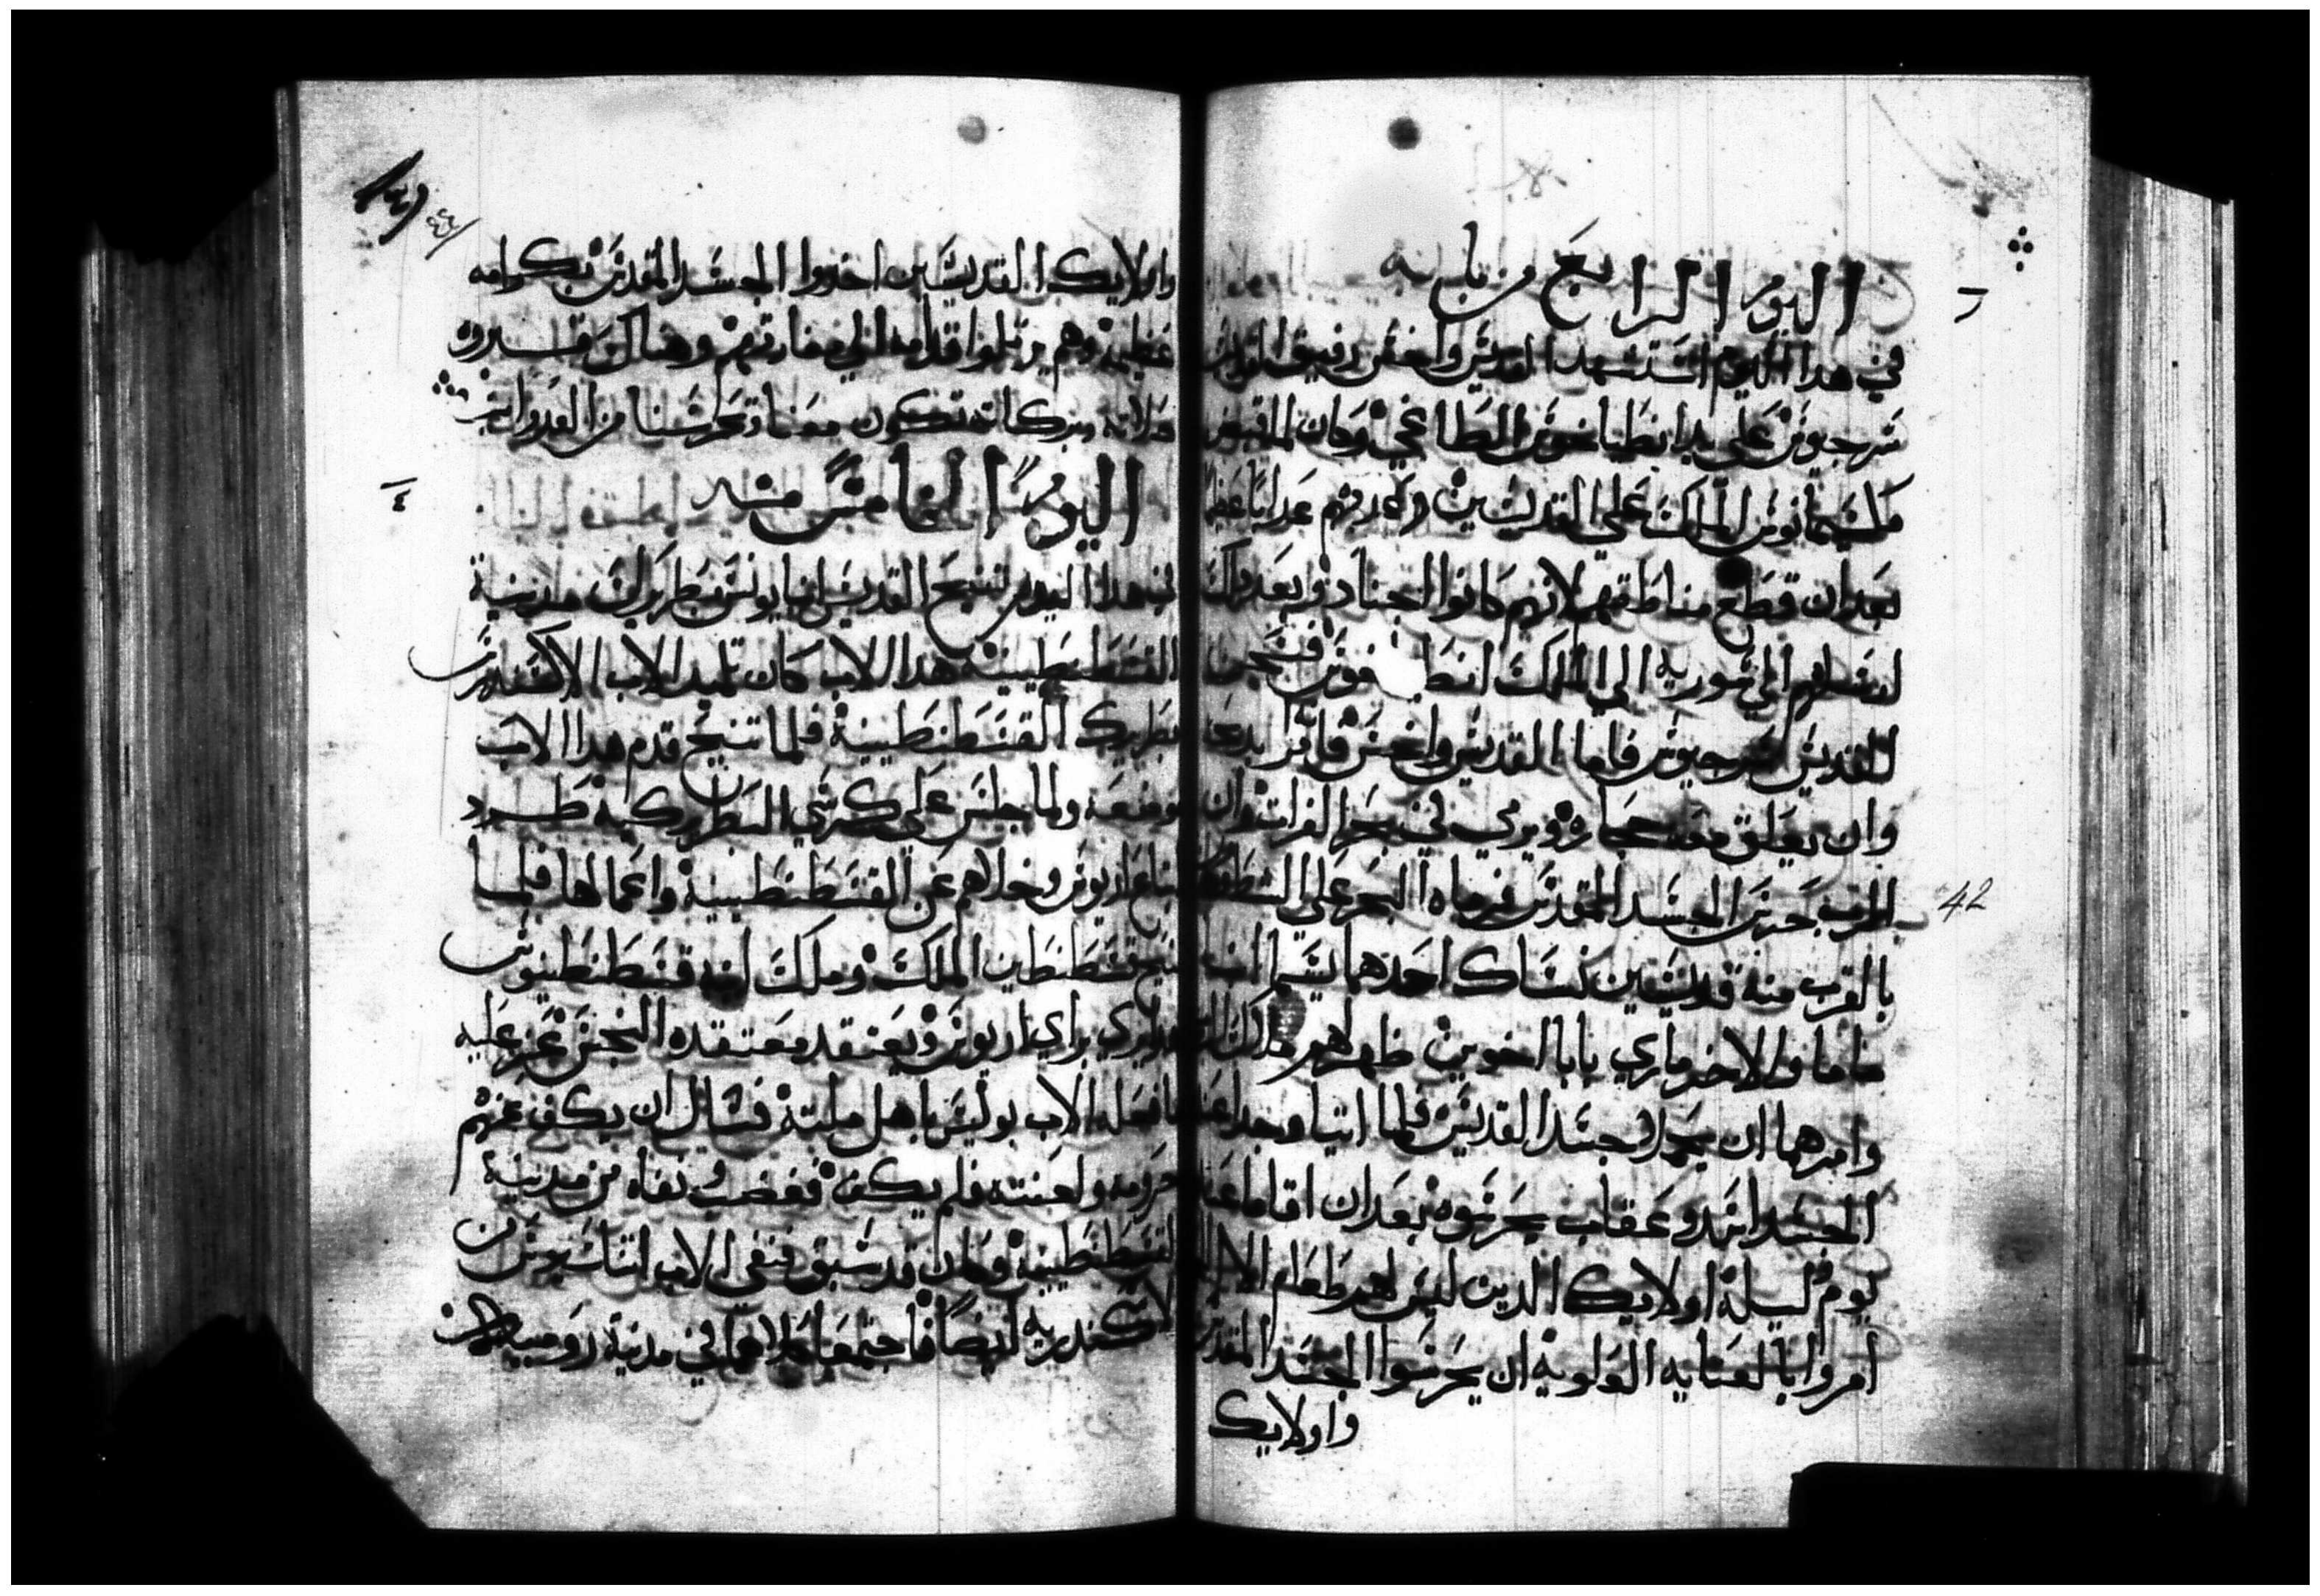 اليوم الرابع من بابه
في هدا اليوم استشهد القديس واخس رفيق القديس
سرجيوس علي يد انطياخوس الطاغي وكان
مكسيمانوس الملك علي القديسين وعدبهم عدابا عظيما
بعد ان قطع مناطقهم لانهم كانوا اجنادا وبعد دلك
ارسلهم الي سورية الي الملك فسجن
القديس سرجيوس فاما القديس واخس فامر بدبحه
وان يعلق معه حجاره ويرمي في بحر الفرات وان
الرب حرس الجسد المقدس فرماه البحر علي الشط وكان
بالقرب منه قديسين نساك احدهما يسما انبا
ماما والاخر ماري بابا اخوين ظهر لهم ملاك الرب
وامرهما ان يحملا جسد القديس فلما اتيا وجدا عند
الجسد اسد وعقاب يحرسوه بعدان اقاما عنده
يوم وليلة اولايك الدين ليس لهم طعام الا
امروا بالعنايه العلوية ان يحرسوا الجسد المقدس
واولايك
١٤١
٤٢
واولايك القديسين اخدوا الجسد المقدس بكرامه
عظيمة وهم يرتلوا قدامه الي مغارتهم وهناك قبروه
صلاته وبركاته تكون معنا وتحرسنا من العدو امين
اليوم الخامس منه
في هدا اليوم تنيح القديس انبا بولس بطريرك مدينة
القسطنطينية هدا الاب كان تلميد الاب الاكسندرس
بطريرك القسطنطينية فلما تنيح قدم هدا الاب
موضعه ولما جلس علي كرسي البطريركية طرد
اتباع اريوس وخلاهم عن القسطنطينية واعمالها فلما
تنيح قسطنطين الملك وملك ابنه قسطنطينوس
وكان يري براي اريوس ويعتقد معتقده النجس عز عليه
ما فعله الاب بولس باهل ملته فسال ان يكف عنهم
حرومه ولعنته فلم يكف فغضب ونفاه من مدينة
القسطنطينية وكان قد سبق فنفي الاب اتناسيوس من
الاسكندرية ايضا فاجتمعا كلاهما في مدينة رومية
42